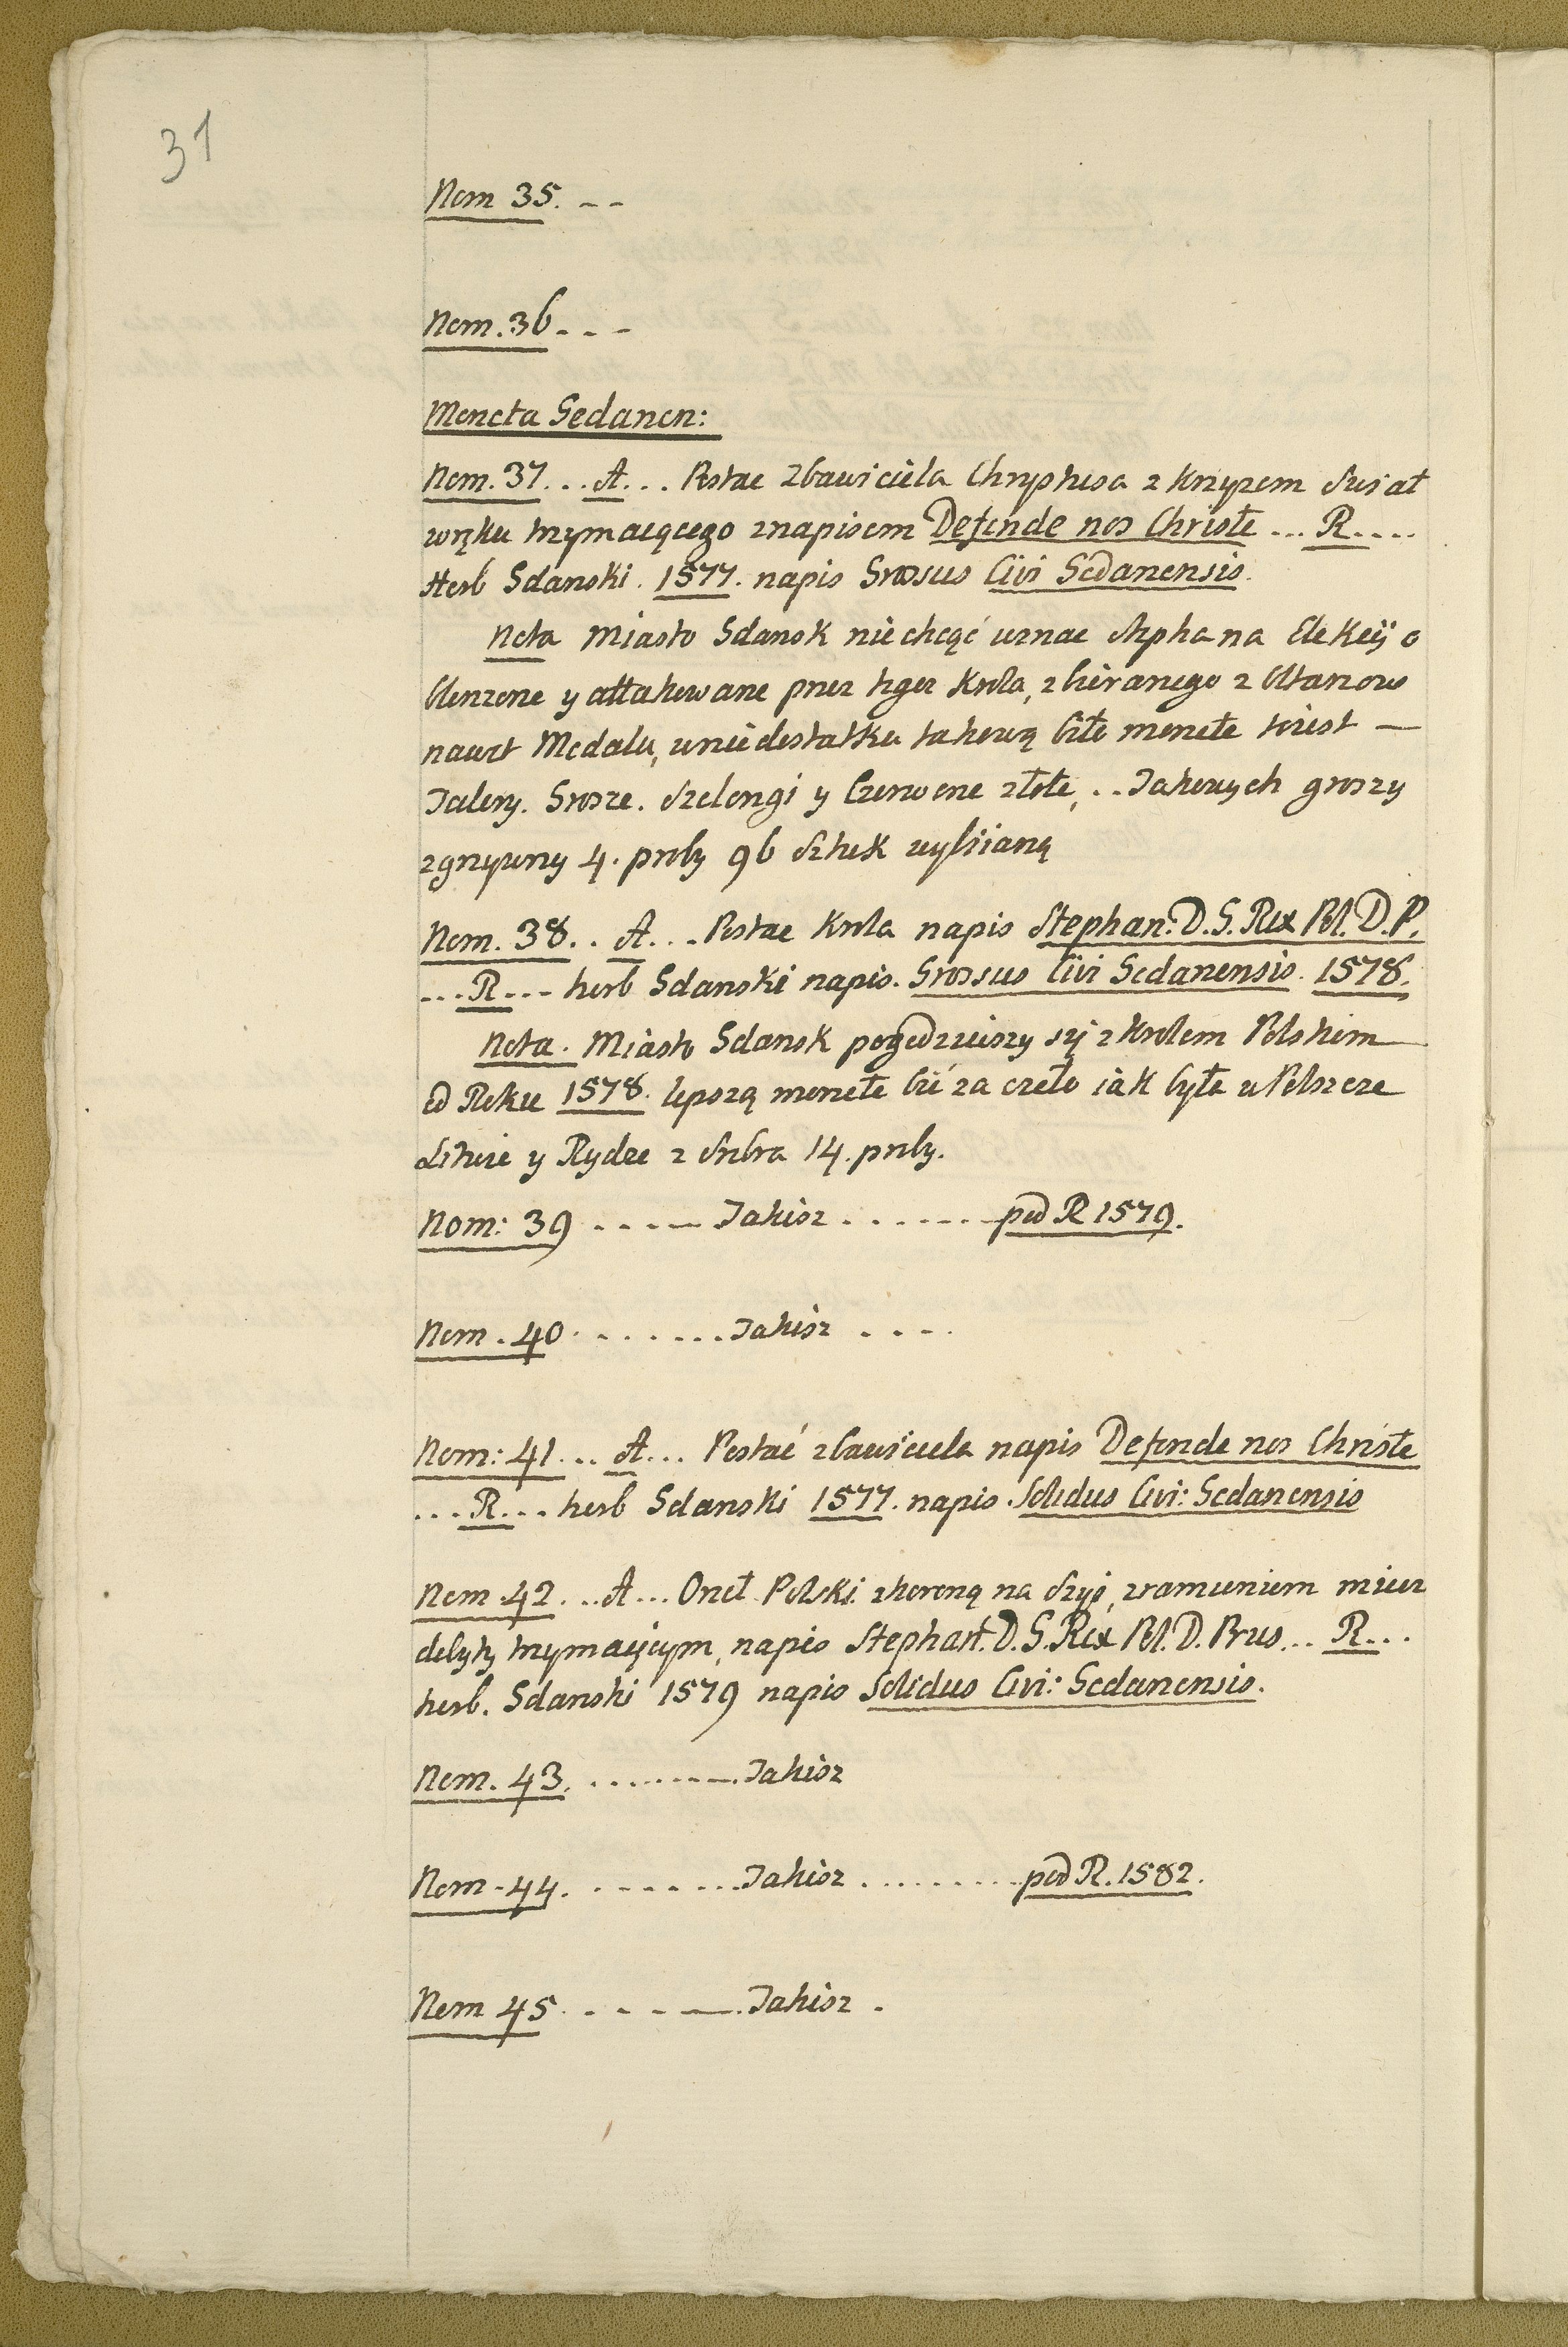 31
Nom 35. - -
Nom. 36 - - -
Moneta Gedanen:
Nom. 37 . . . A . . . Postac Zbawiciela Chrystusa z Krzyzem Swiat
wręku trzymaiącego znapisem Defende nos Christe ... R....
Herb Gdanski. 1577. napis Grossus Civi Gedanensis.
Nota Miasto Gdansk niechcąć uznac Stephana Elekcÿ o
blęzone y attakowane przez tegoz Krola, zbieranego z Ołtarzow
nawet Medalu, w niedostatku takową biło monete toiest —
Talery. Grosze. Szelongi y Czerwone złote, .. Takowych groszy
zgrzywny 4. proby 96 sztuk wybiianą
Nom. 38 . . A . . . Postac Krola napis Stephan. D. G. Rex Pol. D. P.
. . . R . . . herb Gdanski napis. Grossus Civi Gedanensis. 1578.
Nota. Miasto Gdansk pogodziwszy się z Krolem Polskim
od Roku 1578. lepszą monete bić zaczeło iak była w Polszcze
Litwie y Rydze z srebra 14. proby.
Nom: 39 . . . . . Takisz . . . . . . . pod R 1579.
Nom. 40 . . . . . . . Takisz . . . .
Nom: 41 . . . A . . . Postać zbawiciela napis Defende nos Christe
. . . R . . . herb Gdanski 1577. napis Solidus Civi: Gedanensis
Nom. 42 . . . A . . . Orzeł Polski zkoroną na szyi, zramieniem miecz
dobyty trzymaiącym, napis Stephan. D. G. Rex Pol. D. Prus . . . R . . .
herb. Gdanski 1579 napis Solidus Civi: Gedanensis.
Nom. 43. . . . . . . . Takisz
Nom. 44. . . . . . . . Takisz . . . . . . . . pod R. 1582.
Nom 45 . . . . . Takisz .